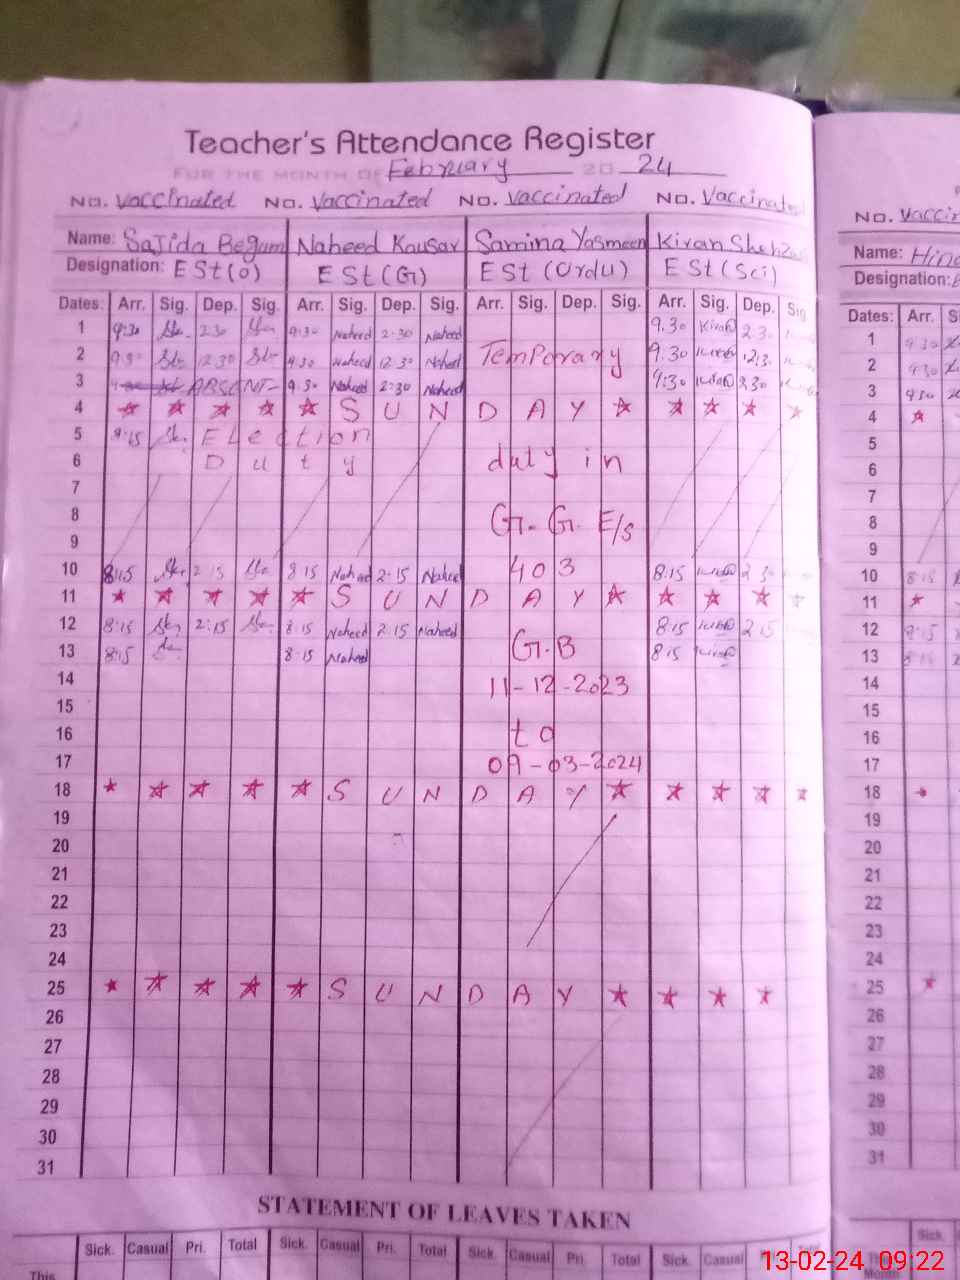 Teacher's Attendance Register
FOR THE MONTH OF February 20 24
NO. vaccinated NO. vaccinated NO. vaccinated NO. Vaccinated NO.
Name: Sajida Begum Naheed Kausar Samina Yasmeen Kiran Name:
Designation: ESt(O) ESt(G) ESt(Urdu) ESt(Sci) Designation:
Dates: Arr. Sig. Dep. Sig. Arr. Sig. Dep. Sig. Arr. Sig. Dep. Sig. Arr. Sig. Dep. Sig Dates: Arr.
1 9:30 2:30 9:30 Naheed 2:30 Naheed 9.30 Kiran 2.30 1 9.30
2 9.30 12.30 9.30 Naheed 12.30 Naheed Temporary 9.30 12:30 2 9.30
3 ABSENT 9.30 Naheed 2:30 Naheed 9:30 3
4 SUNDAY 4
5 8:15 Election 5
6 Duty duty in 6
7 7
8 G.G.E/s 8
9 9
10 8:15 2:15 8:15 Naheed 2:15 Naheed 403 8:15 10 8:15
11 SUNDAY 11
12 8:15 2:15 8:15 Naheed 2:15 Naheed 8:15 2:15 12 8:15
13 8:15 8:15 Naheed G.B 8:15 13
14 11-12-2023 14
15 15
16 to 16
17 09-03-2024 17
18 SUNDAY 18
19 19
20 20
21 21
22 22
23 23
24 24
25 SUNDAY 25
26 26
27 27
28 28
29 29
30 30
31 31
STATEMENT OF LEAVES TAKEN
Sick. Casual Pri. Total Sick. Casual Pri. Total Sick. Casual Pri. Total Sick. Casual Sick.
This
13-02-24 09:22